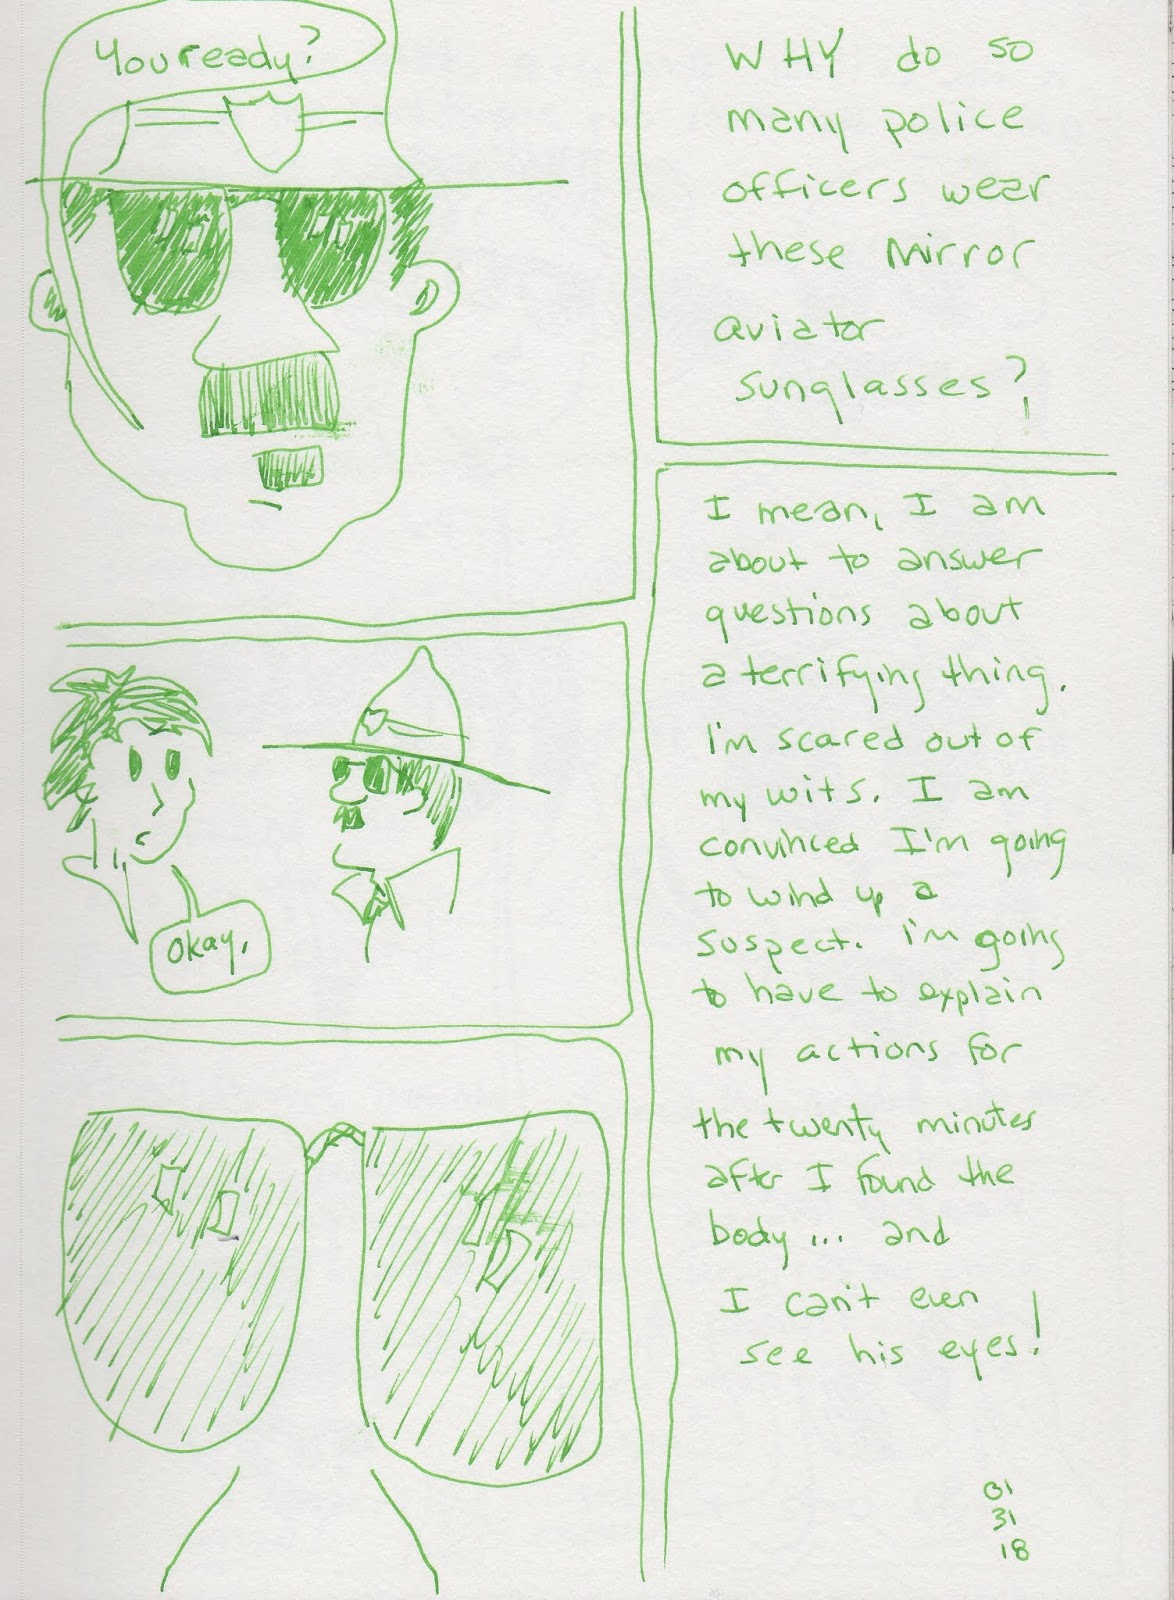 You ready?
WHY do so
many police
officers wear
these mirror
aviator
sunglasses?
okay.
I mean, I am
about to answer
questions about
a terrifying thing.
I'm scared out of
my wits. I am
convinced I'm going
to wind up a
suspect. I'm going
to have to explain
my actions for
the twenty minutes
after I found the
body... and
I can't even
see his eyes!
01
31
18